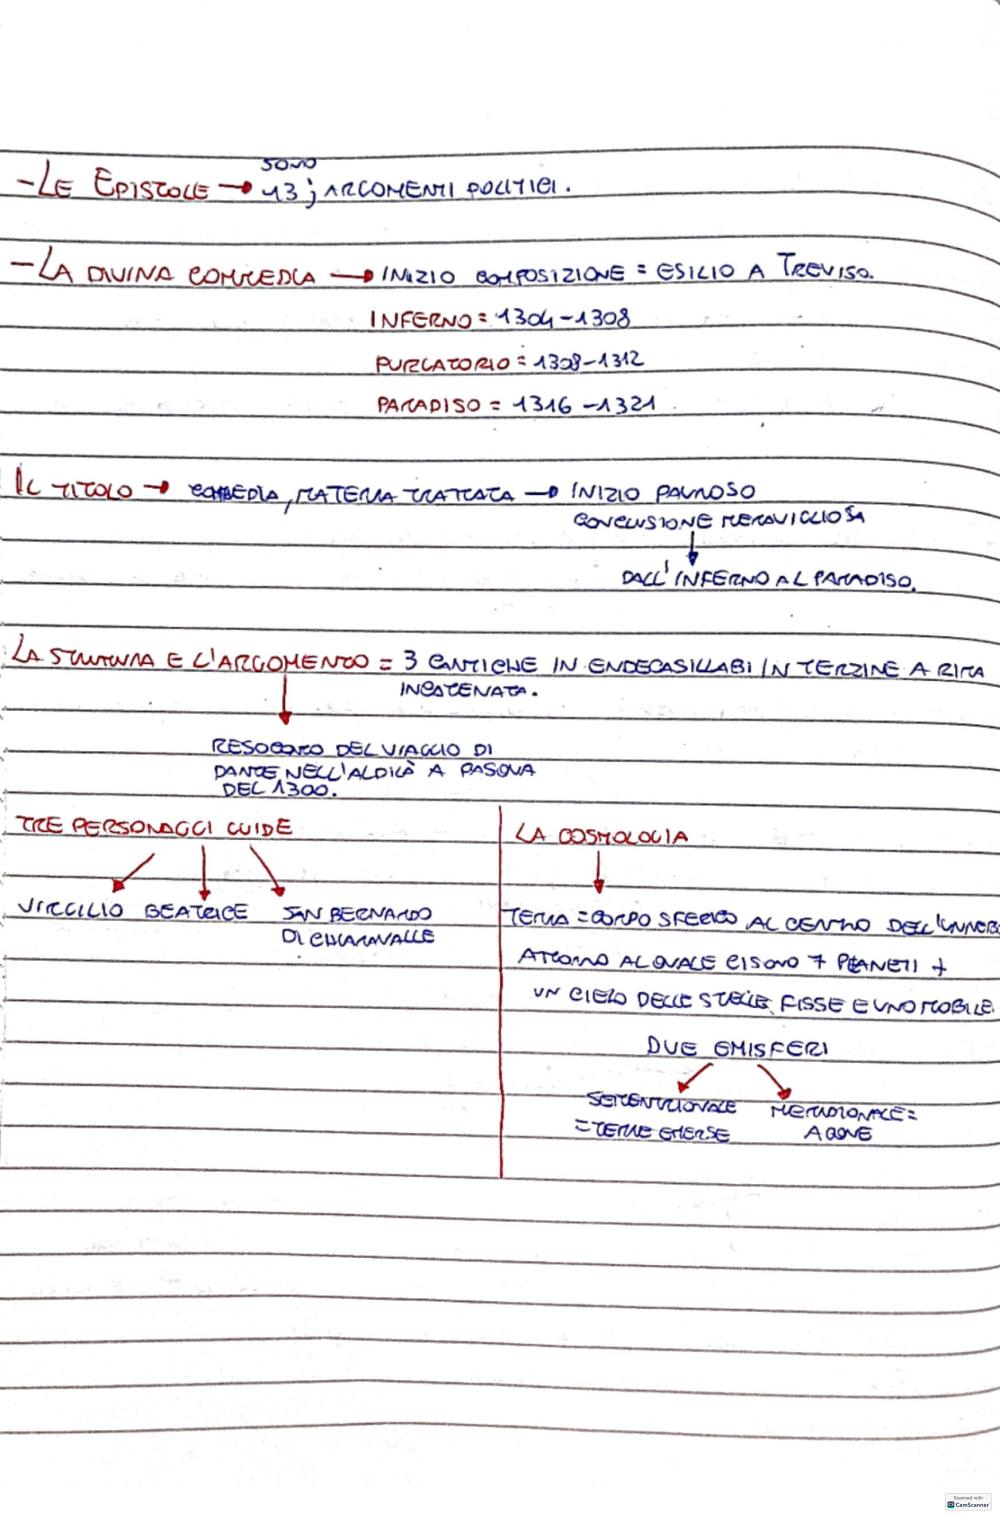 SONO
- LE EPISTOLE → 13; ARGOMENTI POLITICI.
- LA DIVINA COMMEDIA → INIZIO COMPOSIZIONE = ESILIO A TREVISO.
INFERNO = 1304-1308
PURGATORIO = 1308-1312
PARADISO = 1316-1321
IL TITOLO → COMMEDIA, MATERIA TRATTATA → INIZIO PAUROSO
CONCLUSIONE MERAVIGLIOSA
DALL'INFERNO AL PARADISO.
LA STRUTTURA E L'ARGOMENTO = 3 CANTICHE IN ENDECASILLABI IN TERZINE A RIMA
INCATENATA.
RESOCONTO DEL VIAGGIO DI
DANTE NELL'ALDILÀ A PASQUA
DEL 1300.
TRE PERSONAGGI GUIDE
VIRGILIO BEATRICE SAN BERNARDO
DI CHIARAVALLE
LA COSMOLOGIA
TERRA = CORPO SFERICO AL CENTRO DELL'UNIVERS
ATTORNO AL QUALE CI SONO 7 PIANETI +
UN CIELO DELLE STELLE FISSE E UNO MOBILE.
DUE EMISFERI
SETTENTRIONALE MERIDIONALE =
= TERRE EMERSE ACQUE
Scanned with
CamScanner